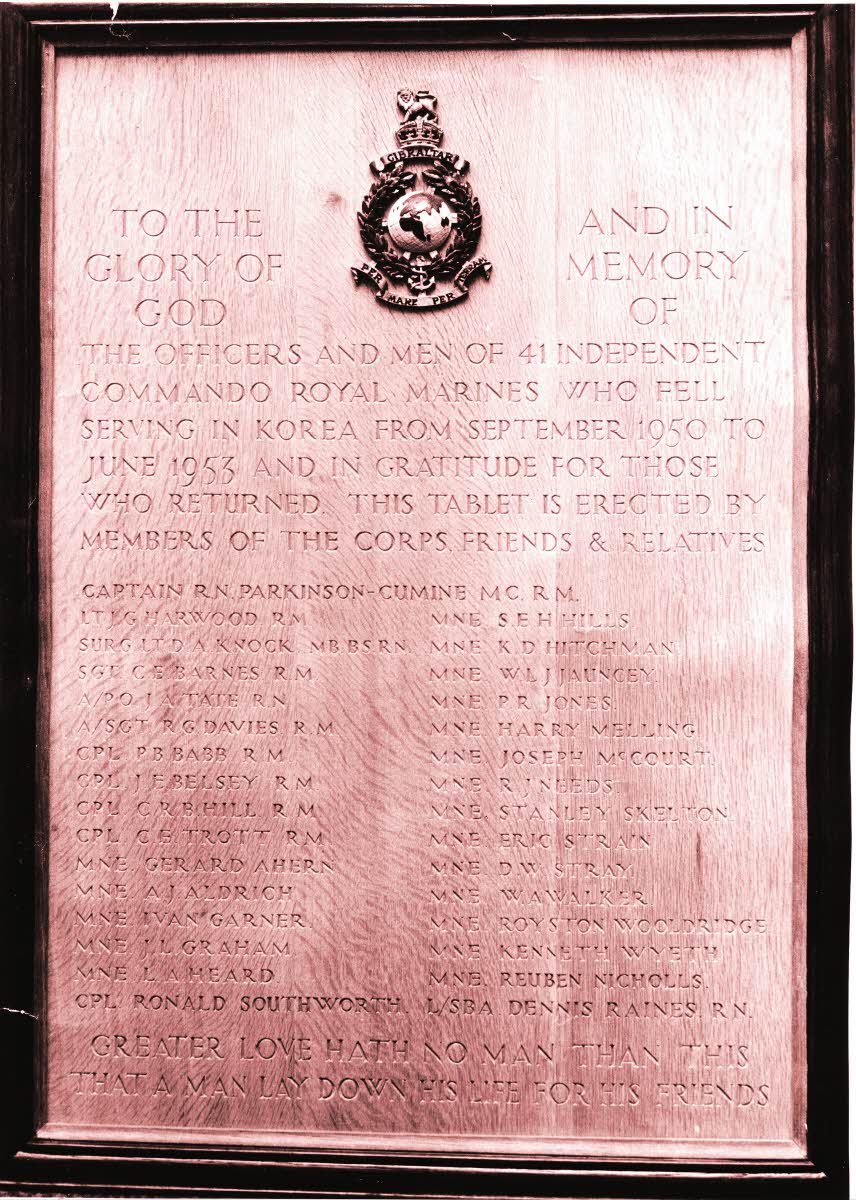 GIBRALTAR
PER MARE PER TERRAM
TO THE
GLORY OF
GOD
AND IN
MEMORY
OF
THE OFFICERS AND MEN OF 41 INDEPENDENT
COMMANDO ROYAL MARINES WHO FELL
SERVING IN KOREA FROM SEPTEMBER 1950 TO
JUNE 1953 AND IN GRATITUDE FOR THOSE
WHO RETURNED. THIS TABLET IS ERECTED BY
MEMBERS OF THE CORPS, FRIENDS & RELATIVES
CAPTAIN R.N. PARKINSON-CUMINE M.C. R.M.
LT J.G. HARWOOD R.M.
SURG. LT D.A. KNOCK. M.B. B.S R.N.
SGT. C.E. BARNES R.M
A/P.O. J.A. TATE R.N.
A/SGT R.G. DAVIES. R.M
CPL P.B. BABB R.M.
CPL. J.E. BELSEY R.M.
CPL. C.R.B. HILL R.M
CPL. C.E. TROTT R.M
MNE. GERARD AHERN
MNE A.J. ALDRICH
MNE IVAN GARNER
MNE J.L. GRAHAM
MNE L.A. HEARD
CPL RONALD SOUTHWORTH.
MNE. S.E.H. HILLS.
MNE K.D. HITCHMAN.
MNE W.L.J. JAUNCEY.
MNE P.R. JONES
MNE. HARRY MELLING
MNE. JOSEPH McCOURT.
MNE. R.J. NEEDS.
MNE. STANLEY SKELTON.
MNE. ERIC STRAIN
MNE. D.W. STRAY.
MNE. W.A. WALKER.
MNE. ROYSTON WOOLDRIDGE
MNE. KENNETH WYETH
MNE. REUBEN NICHOLLS.
L/SBA DENNIS RAINES, R.N.
GREATER LOVE HATH NO MAN THAN THIS
THAT A MAN LAY DOWN HIS LIFE FOR HIS FRIENDS